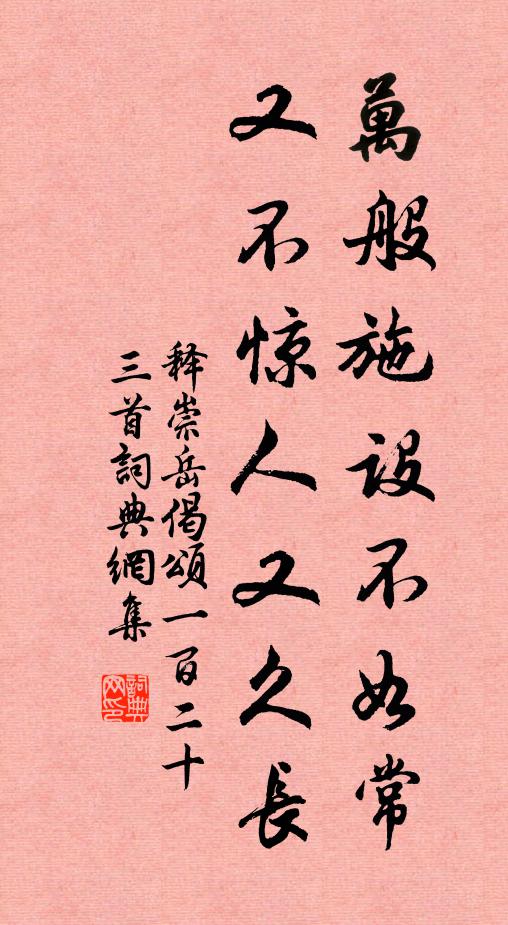 萬般施設不如常
又不惊人又久長
释崇岳偈頌一百二十
三首詞典網集
詞典
网印